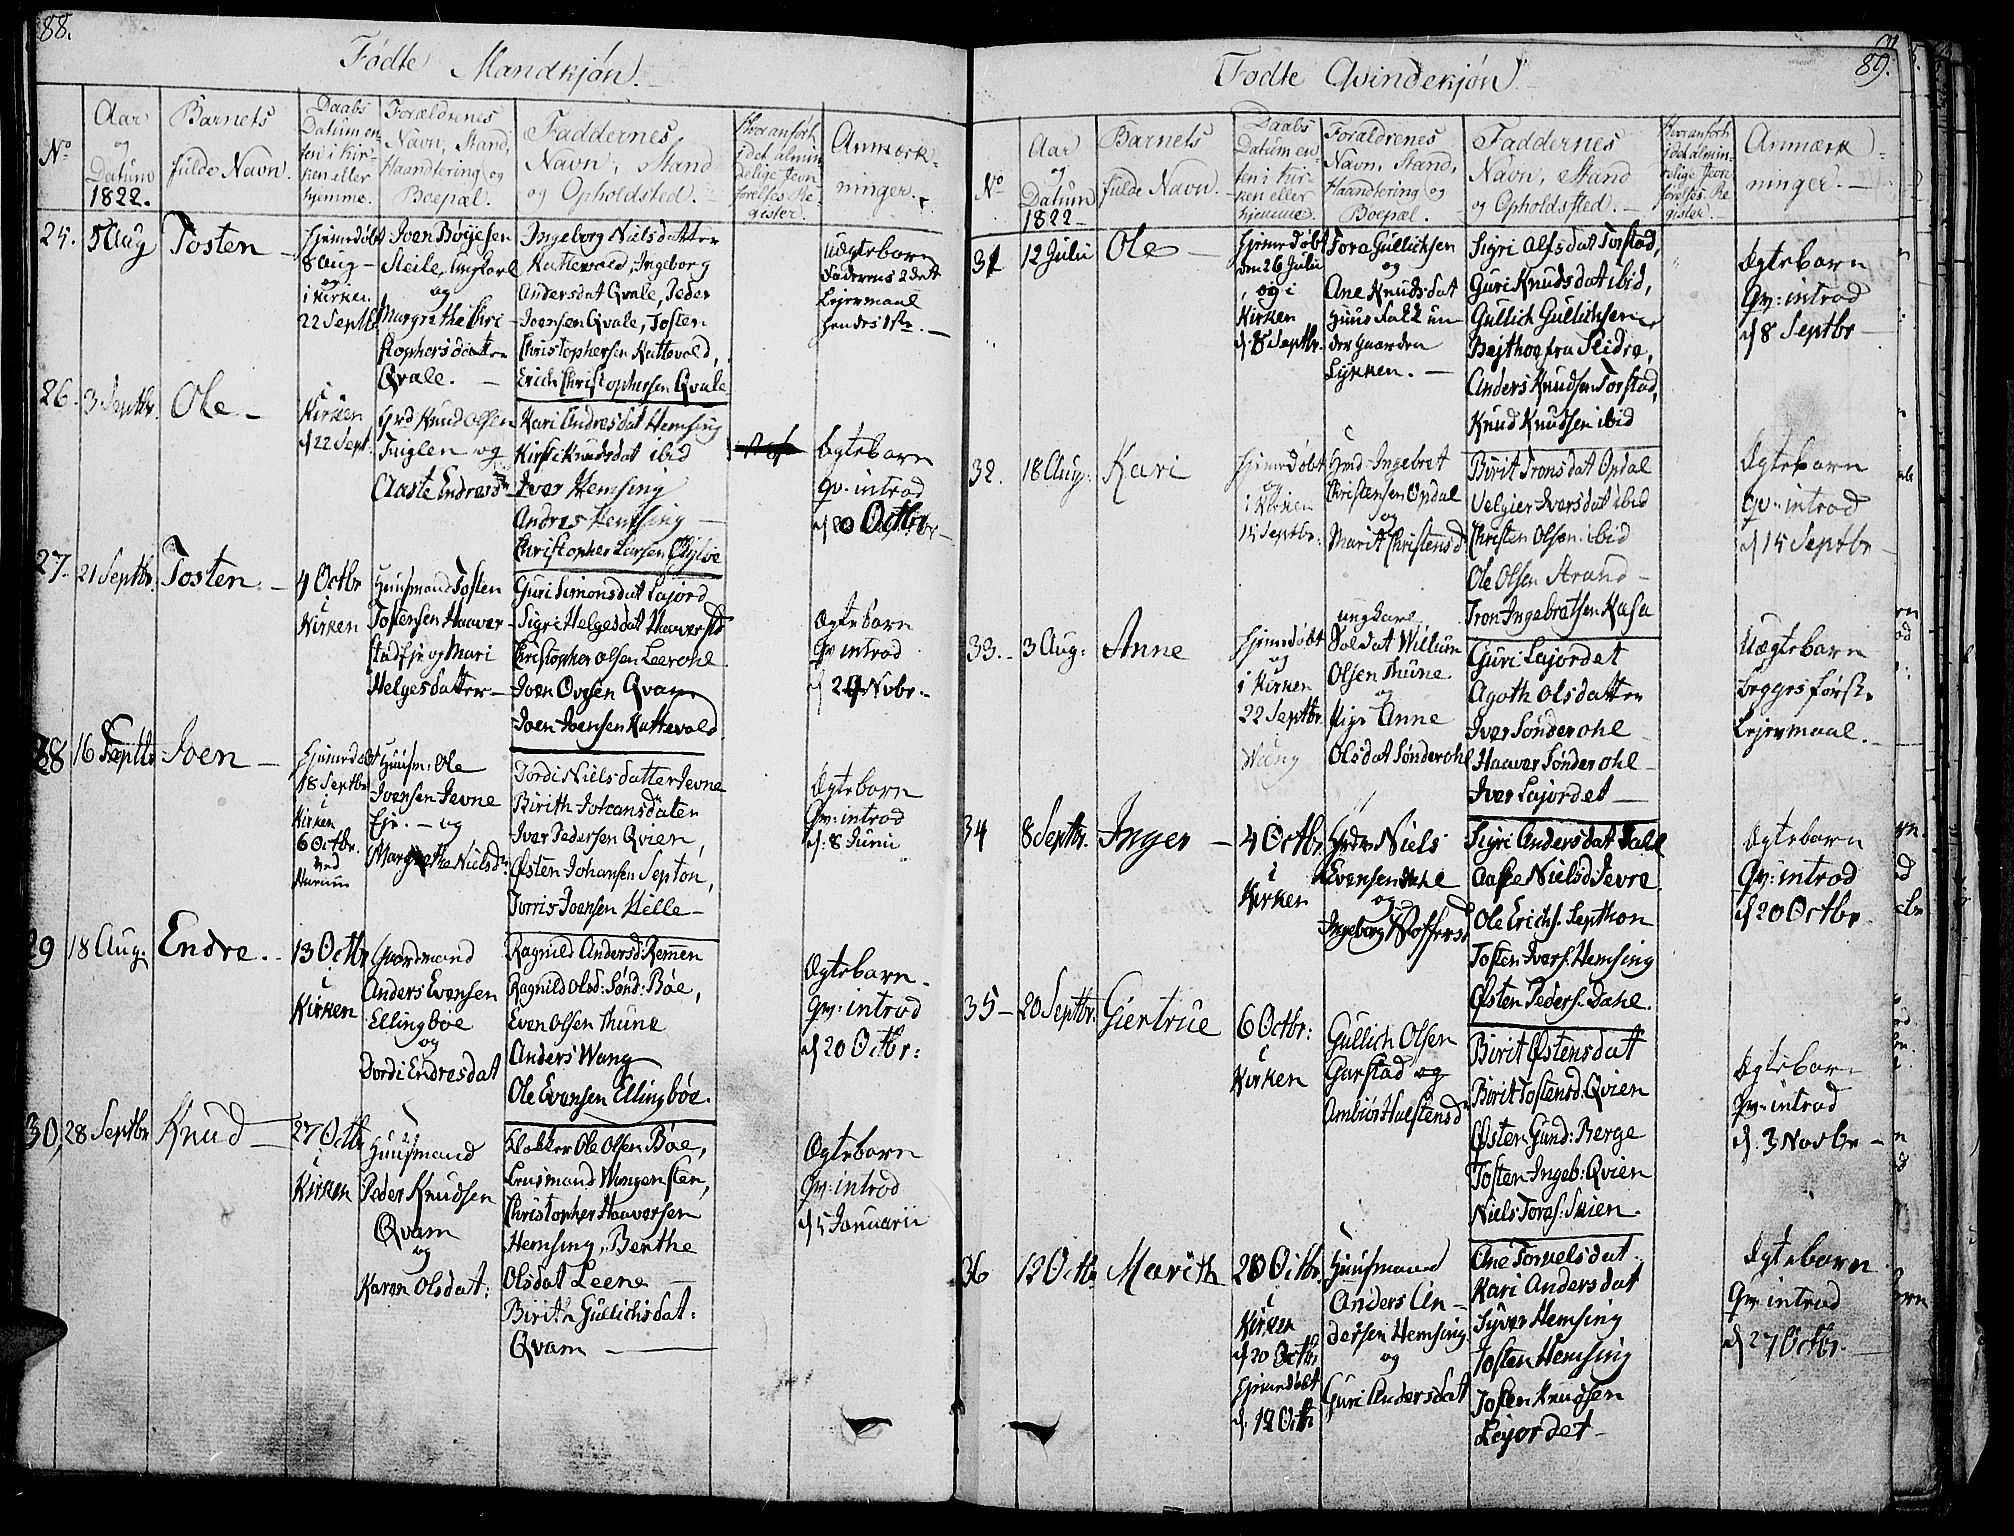 88.
Fødte Mandkjøn.
No
Aar
og
Datum
1822.
Barnets
fulde Navn.
Daabs
Datum en
ten i Kir-
ken eller
hjemme.
Forældrenes
Navn, Stand,
Haandtering og
Boepæl.
Faddernes
Navn, Stand
og Opholdsted.
Hvor anført
i det almin
delige Jevn
førelses Re
gister.
Anmærk-
ninger.
25.
5 Aug
Tosten
Hjemedøbt
8 Aug
og
i Kirken
22 Septb
Joen Børjesen
Steile, Ungkarl
og
Margrethe Chri
stophersdatter
Qvale.
Ingeborg Nielsdatter
Hattevold, Ingeborg
Andersdat Qvale, Peder
Joensen Qvale, Tosten
Christophersen Hattevold,
Erich Christophersen Qvale
Uægtebarn
Faderens 2det
Lejermaal
hendes 1ste.
26.
3 Septbr.
Ole
Kirken
d 22 Sept.
Grd Knud Olsen
Fuglen og
Aaste Endresd
Kari Andresdat Hemsing
Kirsti Knudsdat ibid
Iver Hemsing
Andres Hemsing
Christopher Larsen Øyloe
Ægtebarn
Qv: introd
d 20 Octbr
27.
21 Septbr.
Tosten.
4 Octbr
i
Kirken
Huusmand Tosten
Tostensen Haaver-
stad Eje og Mari
Helgesdatter
Guri Simonsdat Lajord
Sigri Helgesdat Haaverstd
Christopher Olsen Leerohl
Joen Ovesen Qvam
Joen Joensen Hattevold
Ægtebarn
Qv introd
d 24 Novbr.
28
16 Septbr
Joen
Hjemedøbt
18 Septbr
i
Kirken
6 Octbr.
ved
Navnet
Huusm: Ole
Joensen Jevne
Eje. og
Margrethe Nielsd
Jordi Nielsdatter Jevne
Birith Johansdaten
Iver Pedersen Qvien,
Østen Johansen Septon,
Torris Joensen Hille
Ægtebarn
Qv: introd
d: 8 Junii
29
18 Aug.
Endre.
13 Octbr
i
Kirken
Gaardmand
Anders Evensen
Ellingbøe
og
Dordi Endresdat
Ragnild Andersd: Remmen
Ragnild Olsd: Sønd: Bøe,
Even Olsen Thune
Anders Wang
Ole Evensen Ellingbøe.
Ægtebarn.
Qv: introd
d 20 Octbr:
30,
28 Septbr
Knud
27 Octbr
i
Kirken
Huusmand
Peder Knudsen
Qvam
og
Karen Olsdat:
Klokker Ole Olsen Bøe,
Leusmand Wangensteen,
Christopher Haaversen
Hemsing, Berthe
Olsdat Leene
Birith Gullichsdat:
Qvam
Ægtebarn
Qv: introd
d 5 Januarii
89.
Fødte Qvindekjøn
No
Aar
og
Datum
1822
Barnets
fulde Navn.
Daabs
Datum en-
ten i Kir-
ken eller
hjemme.
Forældrenes
Navn, Stand,
Haandtering og
Boepæl.
Faddernes
Navn, Stand
og Opholdsted.
Hvor anført
i det almin-
delige Jevn
førelses Re
gister.
Anmærk-
ninger.
31
12 Julii
Ole
Hjemedøbt
den 26 Julii
og i
Kirken
d. 8 Septbr.
Tora Gullichsen
og
Ane Knudsdat
Huusfolk un
der Gaarden
Lykken.
Sigri Alfsdat Torstad,
Guri Knudsdat ibid,
Gullich Gullichsen
Bejthog fra Slidre,
Anders Knudsen Torstad,
Knud Knudsen ibid
Ægtebarn
Qv: introd
d 8 Septbr
32.
18 Aug:
Kari
Hjemedøbt
og
i Kirken
15 Septbr.
Hmd Ingebret
Christensen Opdal
og
Marit Christensd
Birit Tronsdat Opdal
Velgjer Iversdat ibid
Christen Olsen ibid
Ole Olsen Strand
Tron Ingebretsen Kasa
Ægtebarn
Qv: introd
d 15 Septbr
33.
3 Aug:
Anne
Hjemedøbt
og
i Kirken
22 Septbr.
i
Wang
Ungkarl
Soldat Willum
Olsen Thune
og
Pige Anne
Olsdat Sønderohl
Guri Lajordet
Agoth Olsdatter
Iver Sønderohl
Haaver Sønderohl
Iver Lajordet
Uægtebarn
begges første
Lejermaal.
34
8 Septbr.
Inger
4 Octbr.
i
Kirken
Grdm Niels
Evensen Dahl
og
Ingeborg Tostensd
Sigri Andersdat Dahl
Aase Nielsd Jevre
Ole Erichs. Septhon
Tosten Ivers. Hemsing
Østen Peders. Dahl.
Ægtebarn
Qv: introd
d 20 Octbr.
35
20 Septbr.
Giertrue
6 Octbr:
i
Kirken
Gullich Olsen
Garstad og
Ambiør Halstensd
Birit Østensdat
Birit Tostensd: Qvien
Østen Gund: Berge
Tosten Ingeb: Qvien
Niels Tores: Skien.
Ægtebarn
Qv: introd
d. 3 Novbr
36
12 Octbr
Marith
20 Octbr.
i
Kirken
d 20 Octbr
Hjemedøbt
d. 12 Octb
Huusmand
Anders An-
dersen Hemsing
og
Guri Andersdat
Ane Torkelsdat
Kari Andersdat
Syver Hemsing
Tosten Hemsing
Tosten Knudsen
Lejordet
Ægtebarn
Qv: introd
d 27 Octbr.